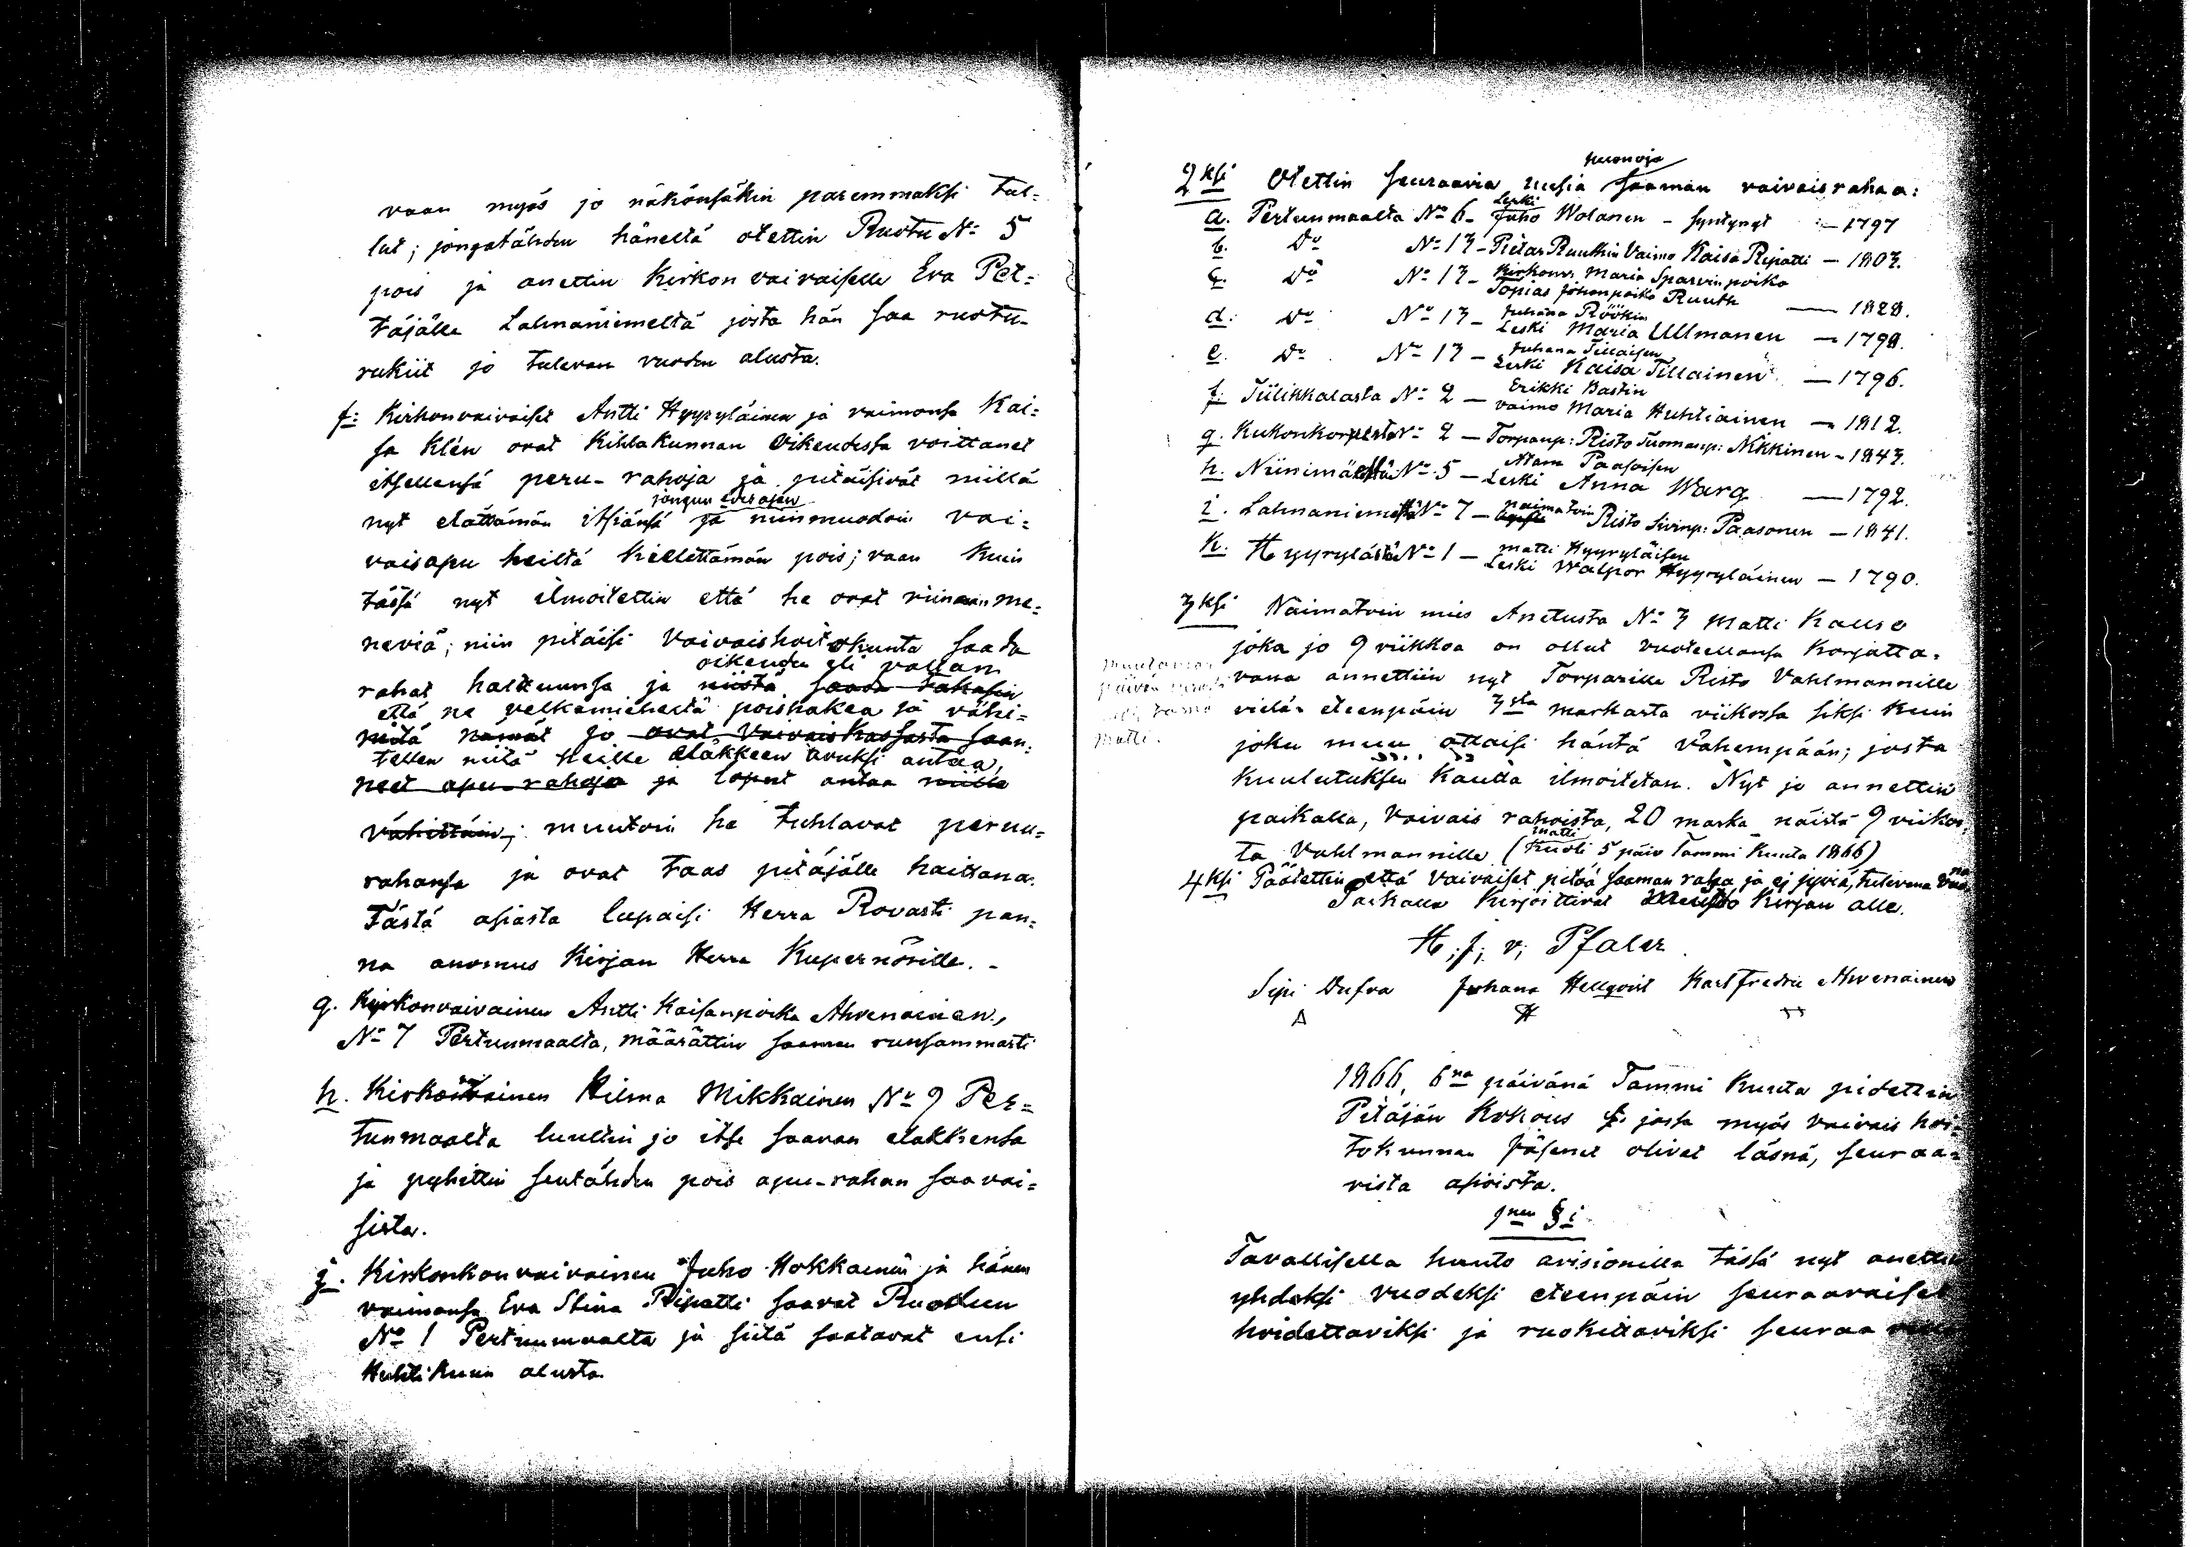 vaan myös jo näkönsäkin paremmaksi tul=
lut; jongatähden häneltä otettin Ruotu No 5
pois ja anettin Kirkon vaivaiselle Eva Pet=
täjälle Lahnaniemeltä josta hän saa ruotu-
rukiit jo tulevan vuoden alusta.
f: Kirkonvaivaiset Antti Hyyryläinen ja vaimonsa Kai=
sa Klén ovat Kihlakunnan Oikeudessa voittanet
itsellensä peru-rahoja ja pitäisivät niillä
jongun edes ajan
nyt elättämän itsiänsä ja niinmuodoin vai=
vaisapu heiltä kiellettämän pois; vaan kuin
tässä nyt ilmoitettin että he ovat viinaan me=
neviä; niin pitäisi Vaivaishoitokunta saada
oikeuden eli vallan
rahat haltuunsa ja niistä saada takasin
että ne velkamieheltä poishakea ja vähi=
mitä nämät jo ovat Vaivaiskassasta saan;
tellen niitä heille eläkkeen avuksi antaa,
neet apu-rahoja ja loput antaa niille
vähittäin; muutoin he tuhlavat peruu=
rahansa ja ovat taas pitäjälle haittana.
Tästä asiasta lupaisi Herra Rovasti pan=
na anomus Kirjan Herra Kupernörille. -
g. Kirkonvaivainen Antti Kaisanpoika Ahvenainen,
No 7 Pertunmaalta, määrättin saaman runsammasti
h. Kirkonvainen Miina Mikkainen No 9 Per=
tunmaalta luultin jo itse saavan elakkensa
ja pyhittin sentähden pois apu-rahan saavai=
sista.
j. Kirkonkonvaivainen Juho Hokkainen ja hänen
vaimonsa Eva Stina Ripatti saavat Ruodun
No 1 Pertunmaalta ja siitä saatavat ensi
Huhti kuun alusta
2ksi Otettin seuraavia uusia huonoja saaman vaivaisrahaa:
a. Pertunmaalta No 6 - Leski Juho Wolanen - syntynyt - 1797
b. Do No 13 - Pietar Ruuthin Vaimo Kaisa Ripatti - 1803.
c. Do No 13 - Kirkonv. Maria Sparvin poika
Topias Johanpoika Ruuth - 1828.
d. Do No 13 - Juhana Röökin
Leski Maria Ullmanen - 1798.
e. Do No 13 - Juhana Tillaisen
Leski Kaisa Tillainen - 1796.
f. Tiilikkalasta No 2 - Erikki Bastin
vaimo Maria Huhtiainen - 1812.
g. Kukonkorpesta No 2 - Torpanp: Risto Tuomasp: Nikkinen - 1843.
h. Niinimäeltä No 5 - Atam Paasoisen
Leski Anna Warg - 1792.
i. Lahnaniemeltä No 7 - naimatoin Risto Sivinp: Paasonen - 1841.
k. Hyyrylästä No 1 - Matti Hyyryläisen
Leski Walpor Hyyryläinen - 1790.
3ksi Naimatoin mies Anetusta No 3 Matti Kause
joka jo 9 viikkoa on ollut vuoteellansa korjatta-
vana annettiin nyt Torparille Risto Vahlmannille
vielä eteenpäin 3sta markasta viikossa siksi kuin
joku muu ottaisi häntä vähempään; josta
Kuulutuksen kautta ilmoitetan. Nyt jo annettin
paikalla, Vaivais rahoista, 20 marka näistä 9 viikos;
ta Vahlmannille (Matti kuoli 5 päiv Tammi Kuuta 1866)
4ksi Päätettin että Vaivaiset pitää saaman rahaa ja ej jyviä, tulevana
Paikalla Kirjoittivat Muisto Kirjan alle.
H. J. v. Pfaler
Sipi Dufva Juhana Hellqvist Karl Fredric Ahvenainen
1866, 6na päivänä Tammi Kuuta pidettin
Pitäjän Kokous jossa myös vaivais hoi=
tokunnan Jäsenet olivat läsnä, seuraa=
vista asioista.
1nen § i
Tavallisella huuto avisionilla tässä nyt anettin
yhdeksi vuodeksi eteenpäin seuraavaiset
hoidettaviksi ja ruokittaviksi seuraa